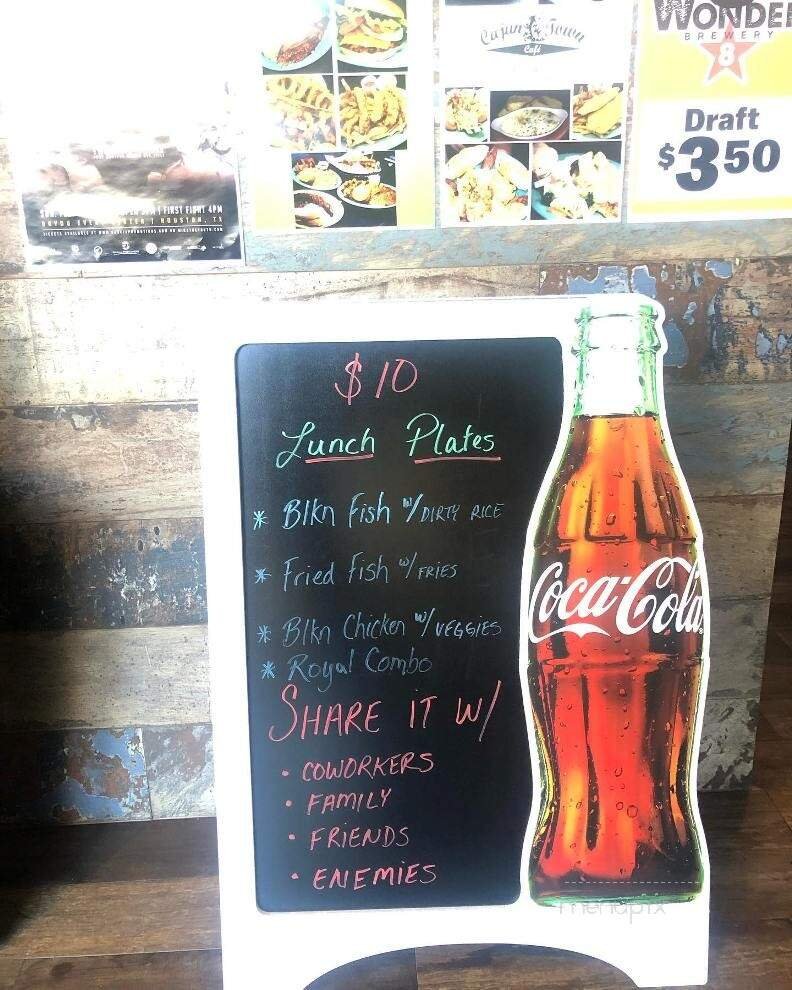 Cajun Town
Café
WONDE
BREWERY
8
Draft
$3.50
FIRST FIGHT 4PM
HOUSTON, TX
$10
Lunch Plates
* Blkn Fish w/ DIRTY RICE
* Fried Fish w/ FRIES
* Blkn Chicken w/ VEGGIES
* Royal Combo
SHARE IT W/
• COWORKERS
• FAMILY
• FRIENDS
• ENEMIES
Coca-Cola
menupix